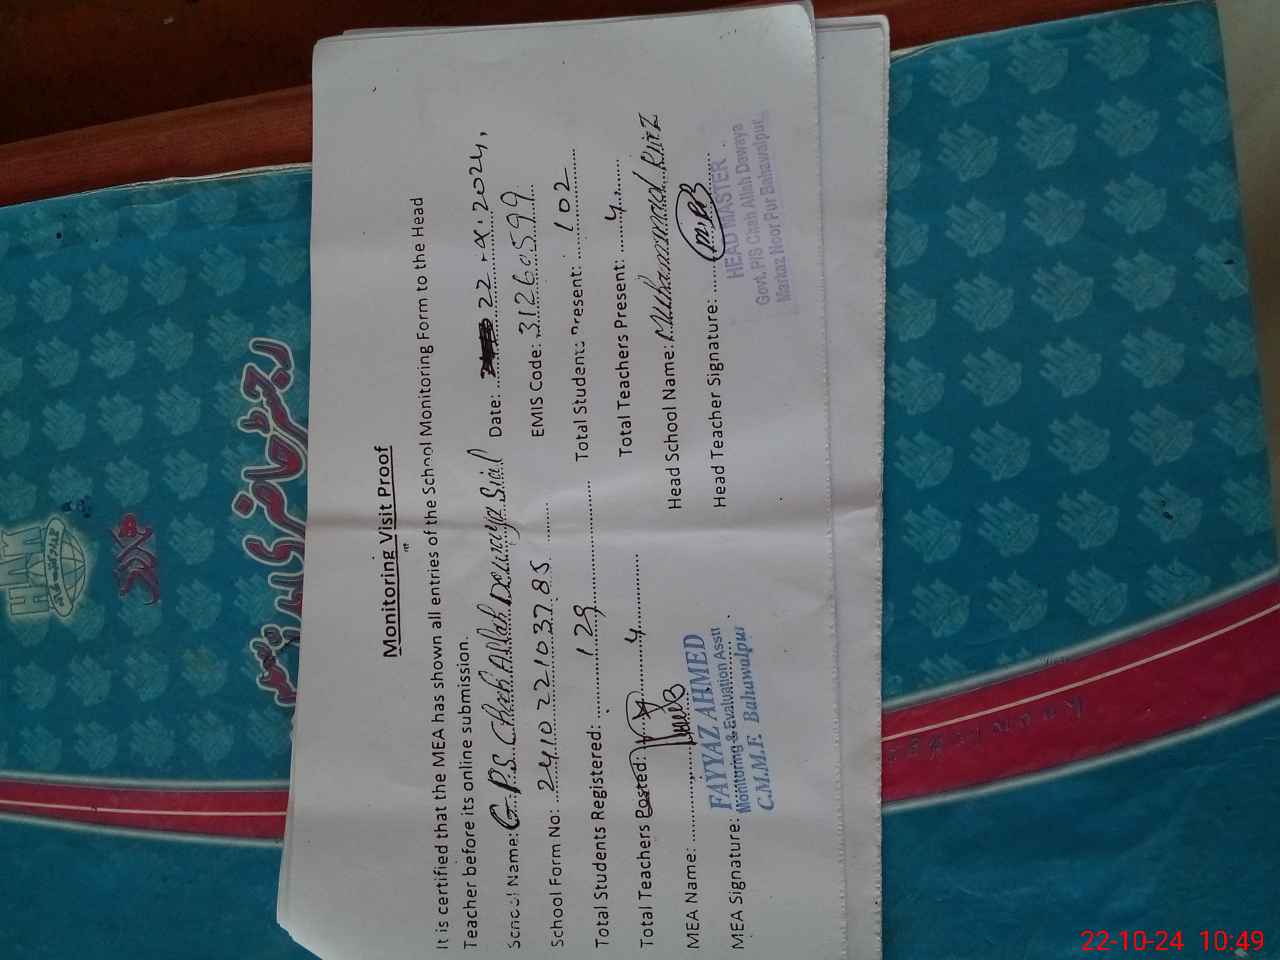 Monitoring Visit Proof
It is certified that the MEA has shown all entries of the School Monitoring Form to the Head
Teacher before its online submission.
School Name: G.P.S Chah Allah Dewaya Sial Date: 22-X-2024,
School Form No: 2410221037.85 EMIS Code: 31260599
Total Students Registered: 129 Total Students Present: 102
Total Teachers Posted: 4 Total Teachers Present: 4
MEA Name: Head School Name: Muhammad Riaz
FAYYAZ AHMED
MEA Signature: Monitoring & Evaluation Asstt Head Teacher Signature:
C.M.M.F. Bahawalpur
HEAD MASTER
Govt. P/S Chah Allah Dewaya
Markaz Noor Pur Bahawalpur
رجسٹر حاضری
22-10-24 10:49